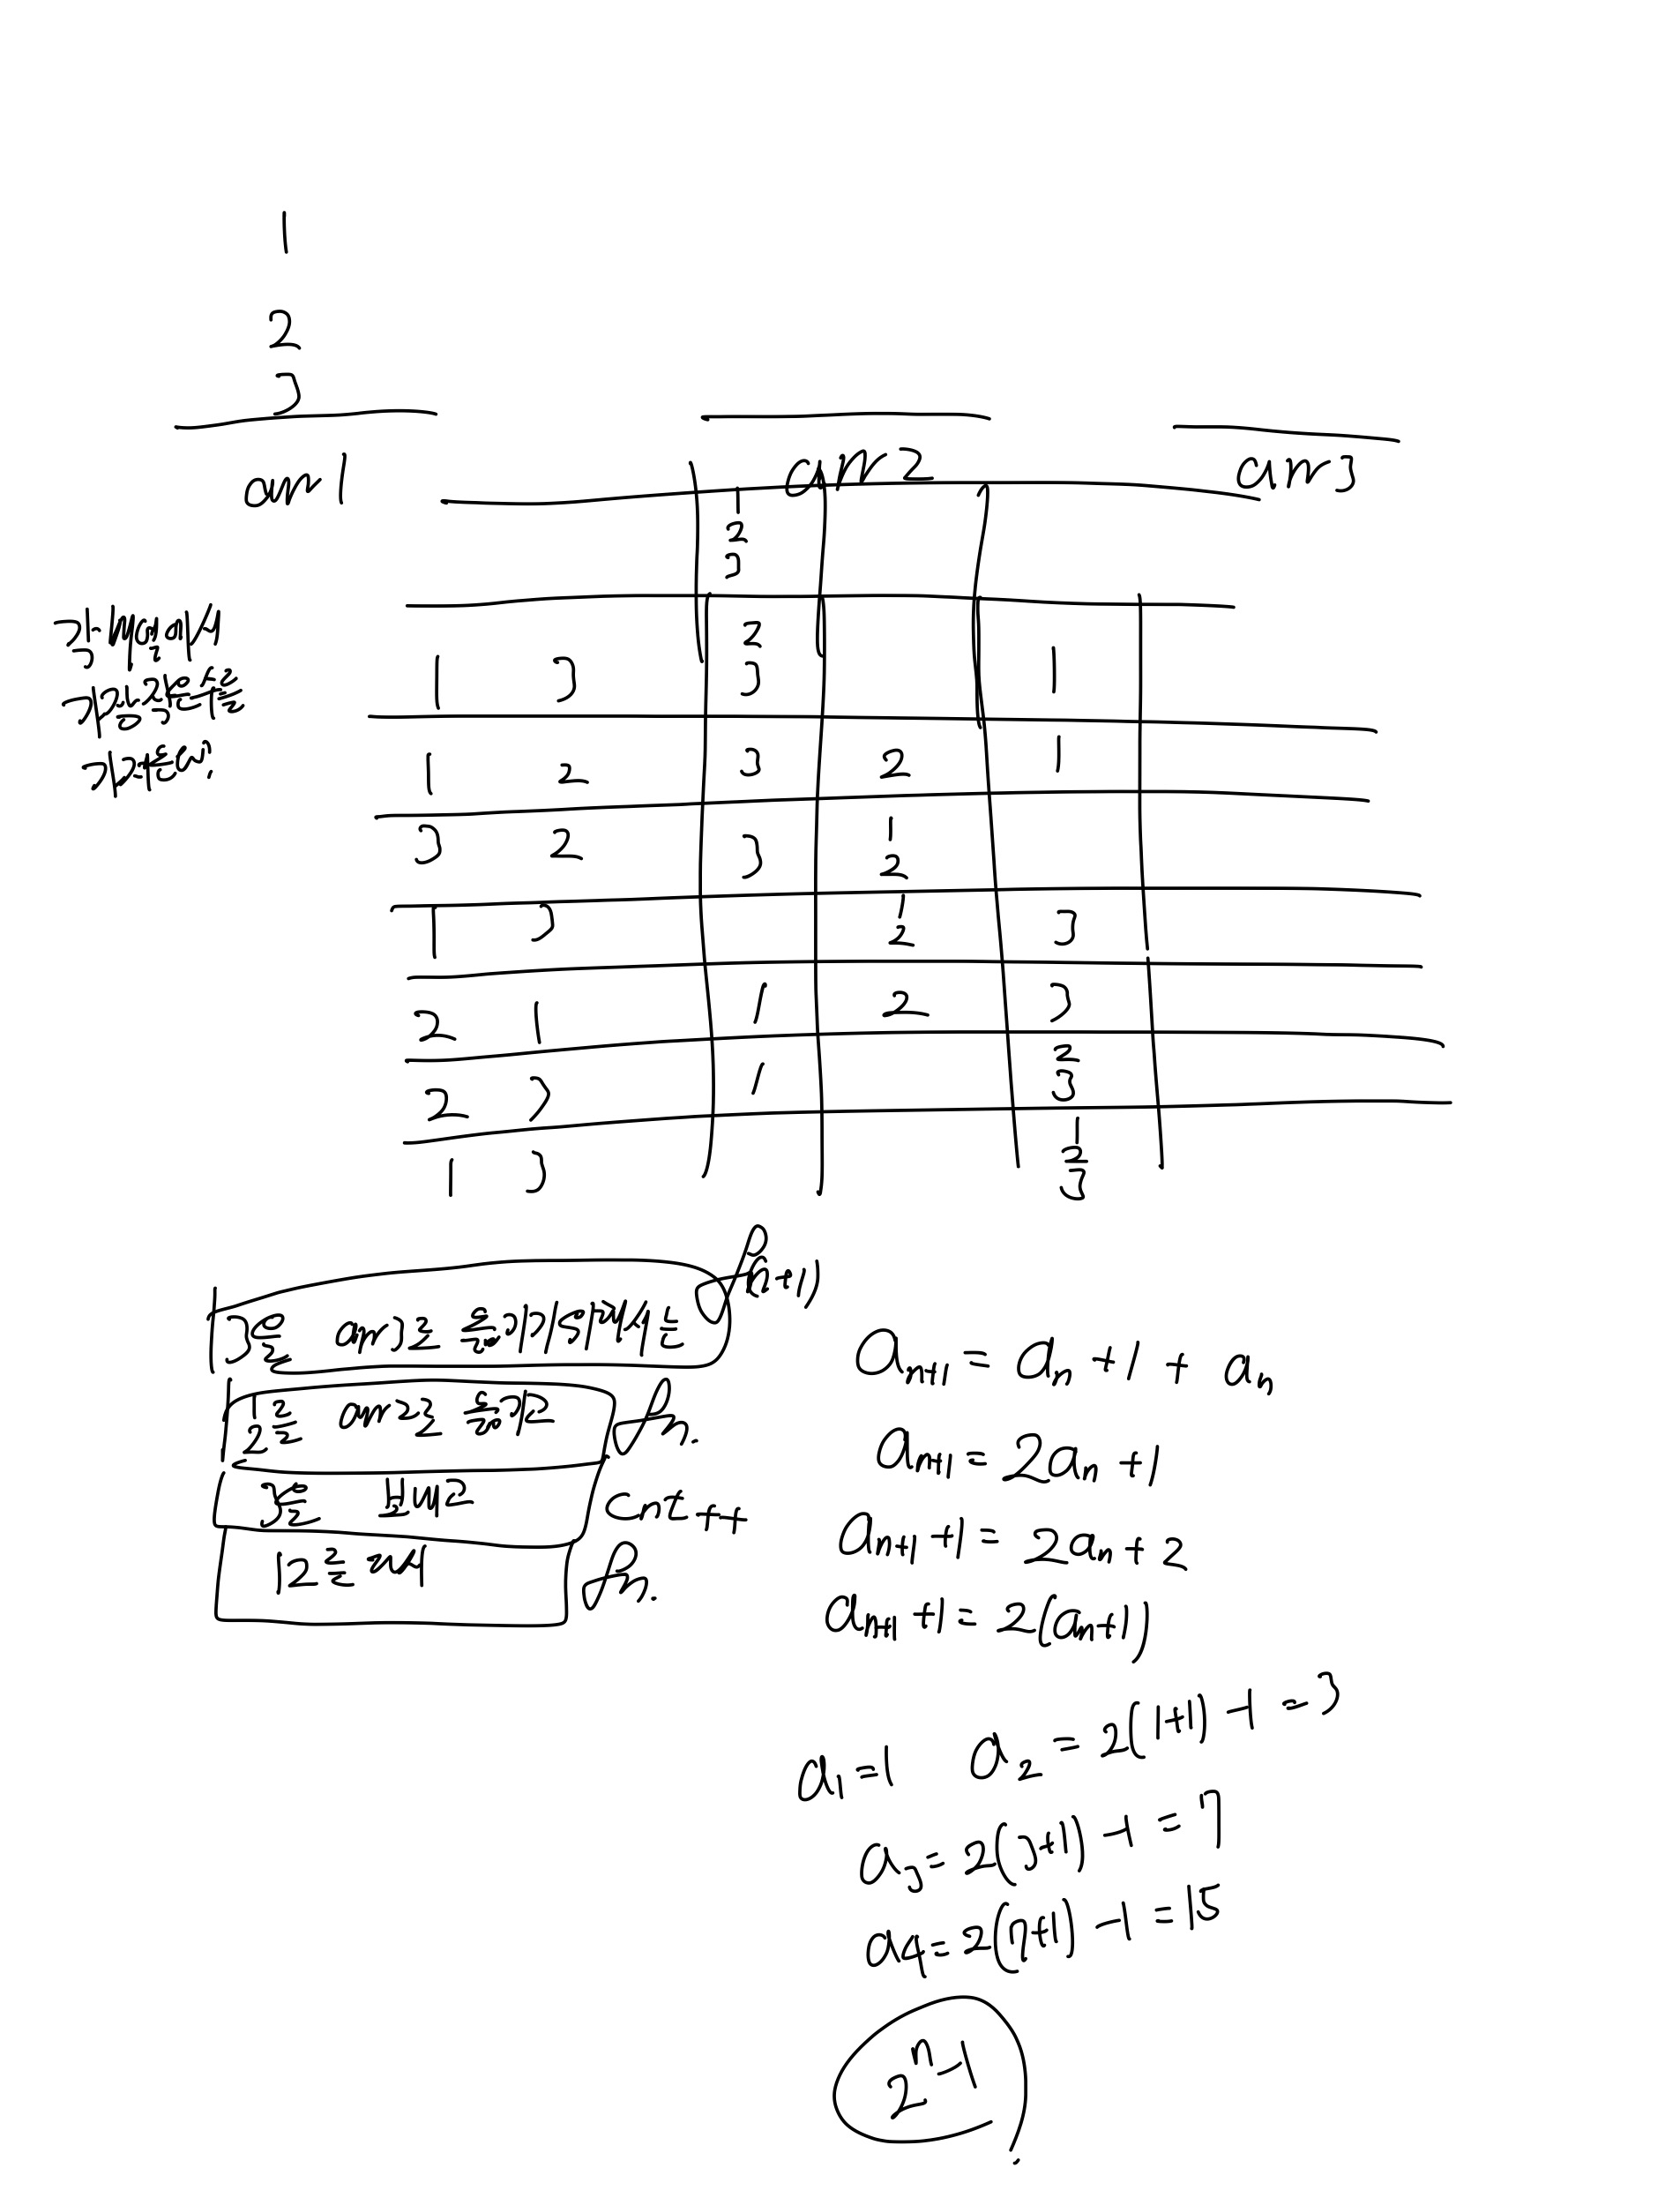 1
2
3
arr1 arr2 arr3
1
2
3
각 배열에서
가장 높은 수를
가져온다.
2
1 3 3 1
1 2 3 2 1
3 2 3 1
2
1 3 1 3
2
2 1 1 2 3
2 3 1 2
3
1 3 1
2
3
3을 arr3로 옮기기 위해서는 f(n+1)
12를 arr2로 옮기고 fn.
3을 보내고 cnt++
12를 fn.
a_{n+1} = a_n + 1 + a_n
a_{n+1} = 2a_n + 1
a_{n+1} + 1 = 2a_n + 2
a_{n+1} + 1 = 2(a_n+1)
a_1 = 1 a_2 = 2(1+1) - 1 = 3
a_3 = 2(3+1) - 1 = 7
a_4 = 2(7+1) - 1 = 15
2^n - 1